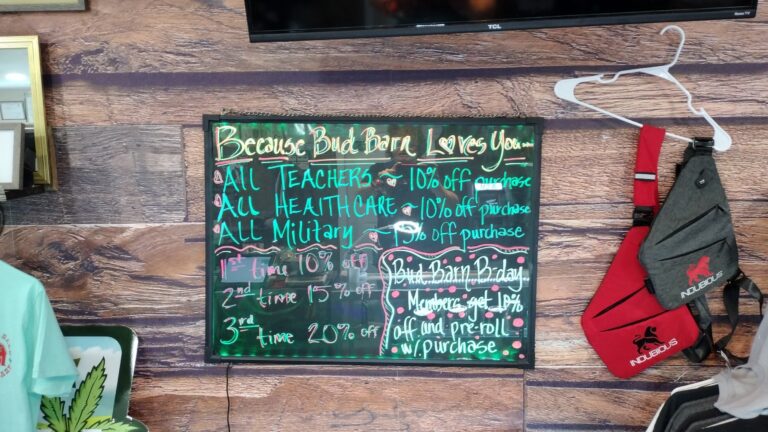 TCL
Roku TV
Because Bud Barn Loves You...
ALL TEACHERS ~ 10% off purchase
ALL HEALTHCARE ~ 10% off purchase
ALL Military ~ 15% off purchase
1st time 10% off
2nd time 15% off
3rd time 20% off
Bud Barn B-day
Members get 10%
off and pre-roll
w/ purchase
INDUBIOUS
INDUBIOUS